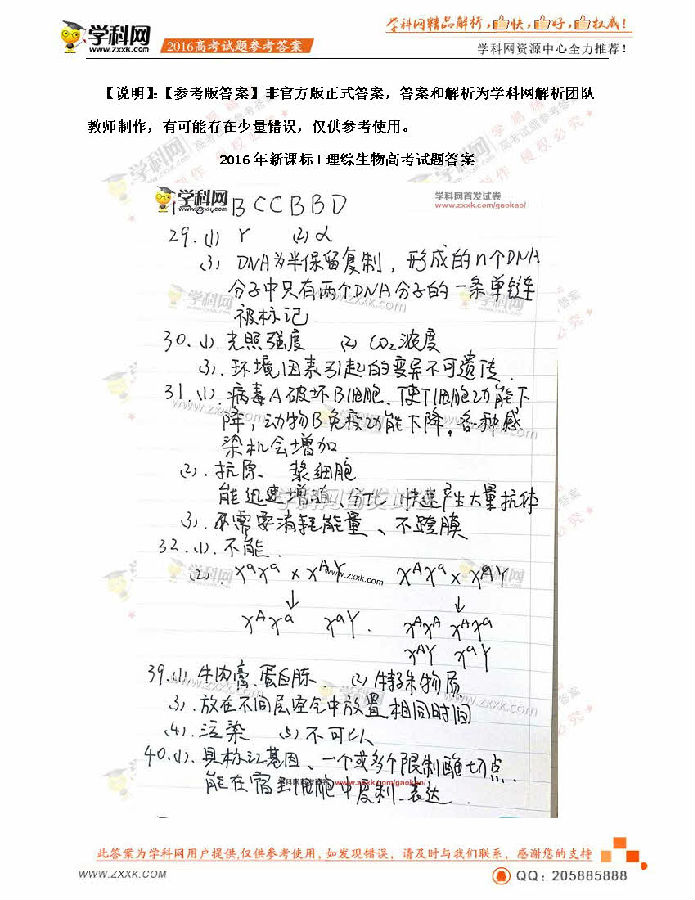 学科网
2016高考试题参考答案
学科网精品解析，快，好，权威！
学科网资源中心全力推荐！
【说明】：【参考版答案】非官方版正式答案，答案和解析为学科网解析团队
教师制作，有可能存在少量错误，仅供参考使用。
2016年新课标I理综生物高考试题答案
学科网
学科网首发试卷
www.zxxk.com/gaokao/
BCCBBD
29. (1) γ (2) α
(3) DNA为半保留复制，形成的n个DNA
分子中只有两个DNA分子的一条单链
被标记
30. (1) 光照强度 (2) CO₂浓度
(3). 环境因素引起的变异不可遗传.
31. (1). 病毒A破坏B细胞、使T细胞功能下
降，动物B免疫功能下降。各种感
染机会增加
(2). 抗原、浆细胞
能迅速增殖、分化、快速产生大量抗体
(3). 不需要消耗能量、不跨膜
32. (1). 不能.
(2). XᵃXᵃ × XᴬY XᴬXᵃ × XᵃY
↓ ↓
XᴬXᵃ XᵃY. XᴬXᴬ XᴬXᵃ
XᴬY XᵃY
39. (1). 牛肉膏、蛋白胨. (2) 特殊物质
(3). 放在不同层空气中放置相同时间
(4). 污染 (5) 不可以
40. (1). 具标记基因、一个或多个限制酶切点.
能在宿主细胞中复制、表达.
此答案为学科网用户提供,仅供参考使用,如发现错误，请及时与我们联系，感谢您的支持
WWW.ZXXK.COM
QQ：205885888